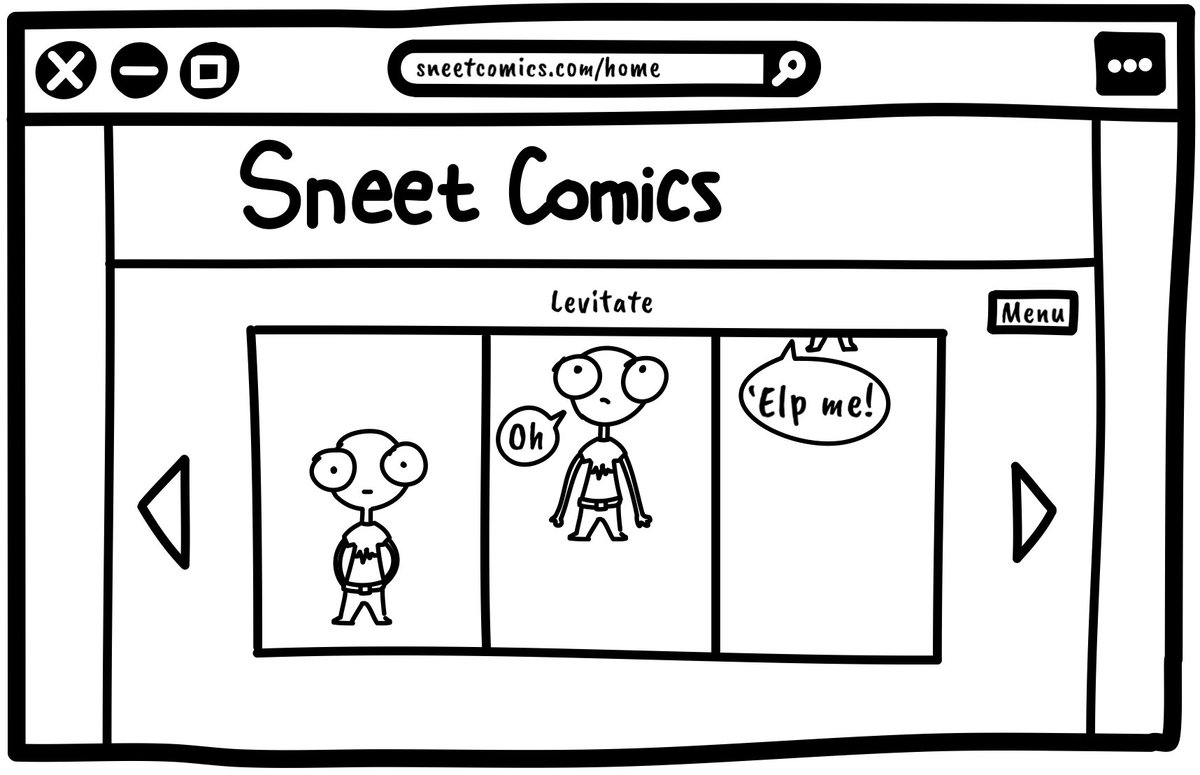 sneetcomics.com/home
Sneet Comics
Levitate
Menu
Oh
‘Elp me!